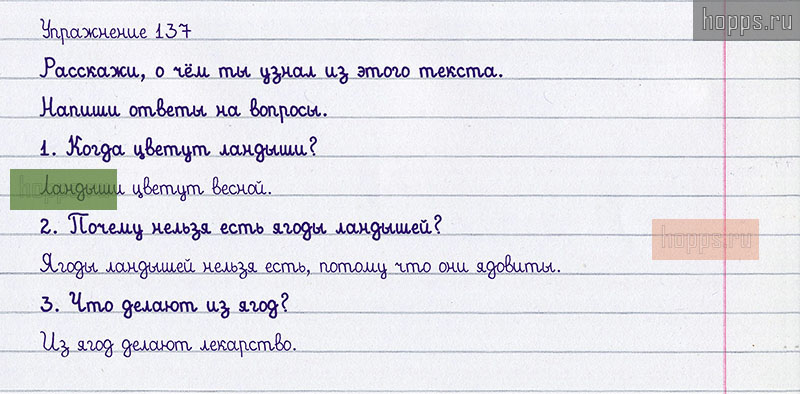 hopps.ru
Упражнение 137
Расскажи, о чём ты узнал из этого текста.
Напиши ответы на вопросы.
1. Когда цветут ландыши?
Ландыши цветут весной.
hopps.ru
2. Почему нельзя есть ягоды ландышей?
hopps.ru
Ягоды ландышей нельзя есть, потому что они ядовиты.
3. Что делают из ягод?
Из ягод делают лекарство.